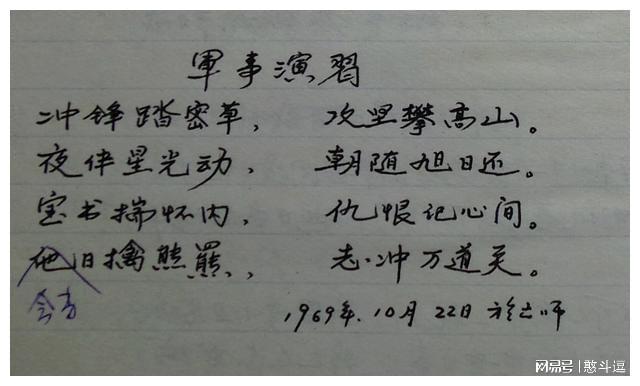 軍事演習
冲锋踏密草， 攻坚攀高山。
夜伴星光动， 朝随旭日还。
宝书揣怀内， 仇恨记心间。
他日擒熊羆， 志冲万道关。
会
1969年.10月22日 於师
网易号 | 憨斗逗